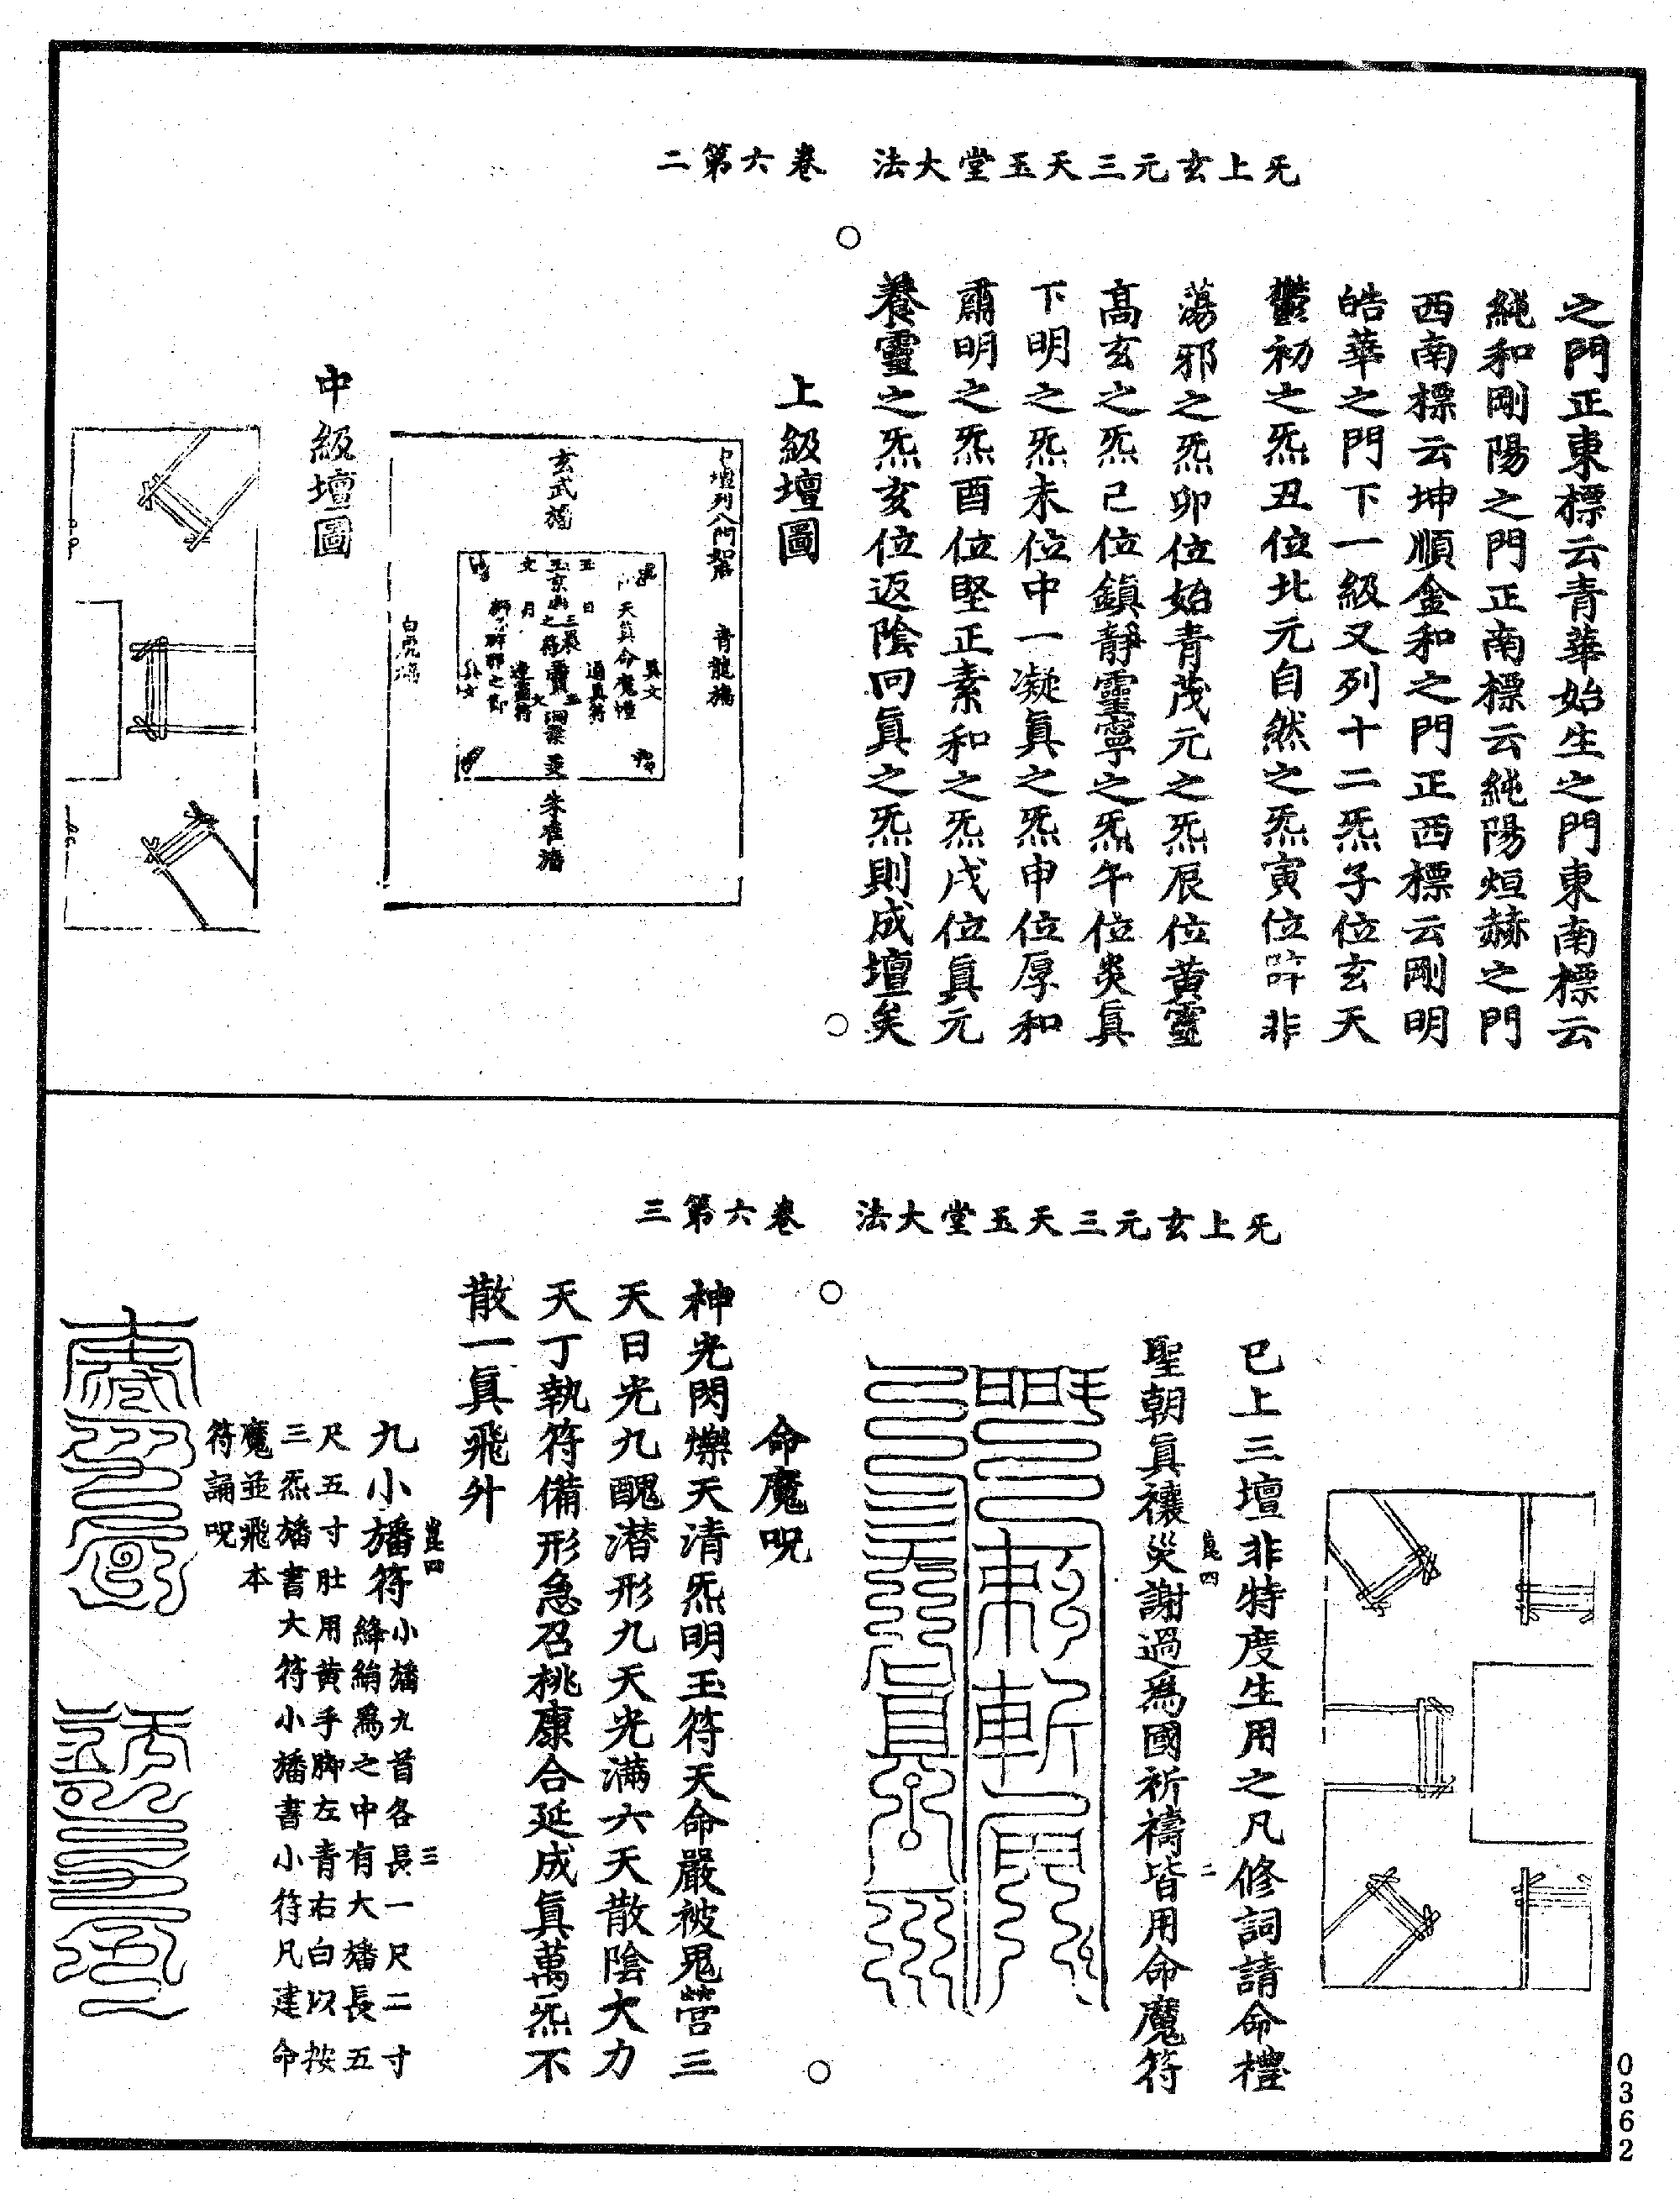 无上玄元三天玉堂大法　卷六第二
之門正東標云青華始生之門東南標云
純和剛陽之門正南標云純陽烜赫之門
西南標云坤順金和之門正西標云剛明
皓華之門下一級又列十二炁子位玄天
初之炁丑位北元自然之炁寅位非
蕩邪之炁卯位始青茂元之炁辰位黃靈
高玄之炁己位鎮靜靈寧之炁午位炎眞
下明之炁未位中一凝眞之炁申位厚和
肅明之炁酉位堅正素和之炁戌位眞元
養靈之炁亥位返陰回眞之炁則成壇矣
上級壇圖
青龍旛
玄武旛
朱雀旛
白虎旛
天眞命魔幢
通眞符
中級壇圖
无上玄元三天玉堂大法　卷六第三
已上三壇非特度生用之凡修詞請命禮
聖朝眞禳災謝過爲國祈禱皆用命魔符
命魔呪
神光閃爍天清炁明玉符天命嚴被鬼營三
天日光九醜潛形九天光滿六天散陰大力
天丁執符備形急召桃康合延成眞萬炁不
散一眞飛升
九小旛符小旛九首各長一尺二寸
絳絹爲之中有大旛長五
尺五寸肚用黃手脚左青右白以按
三炁旛書大符小旛書小符凡建命
魔並飛本
符誦呪
0362